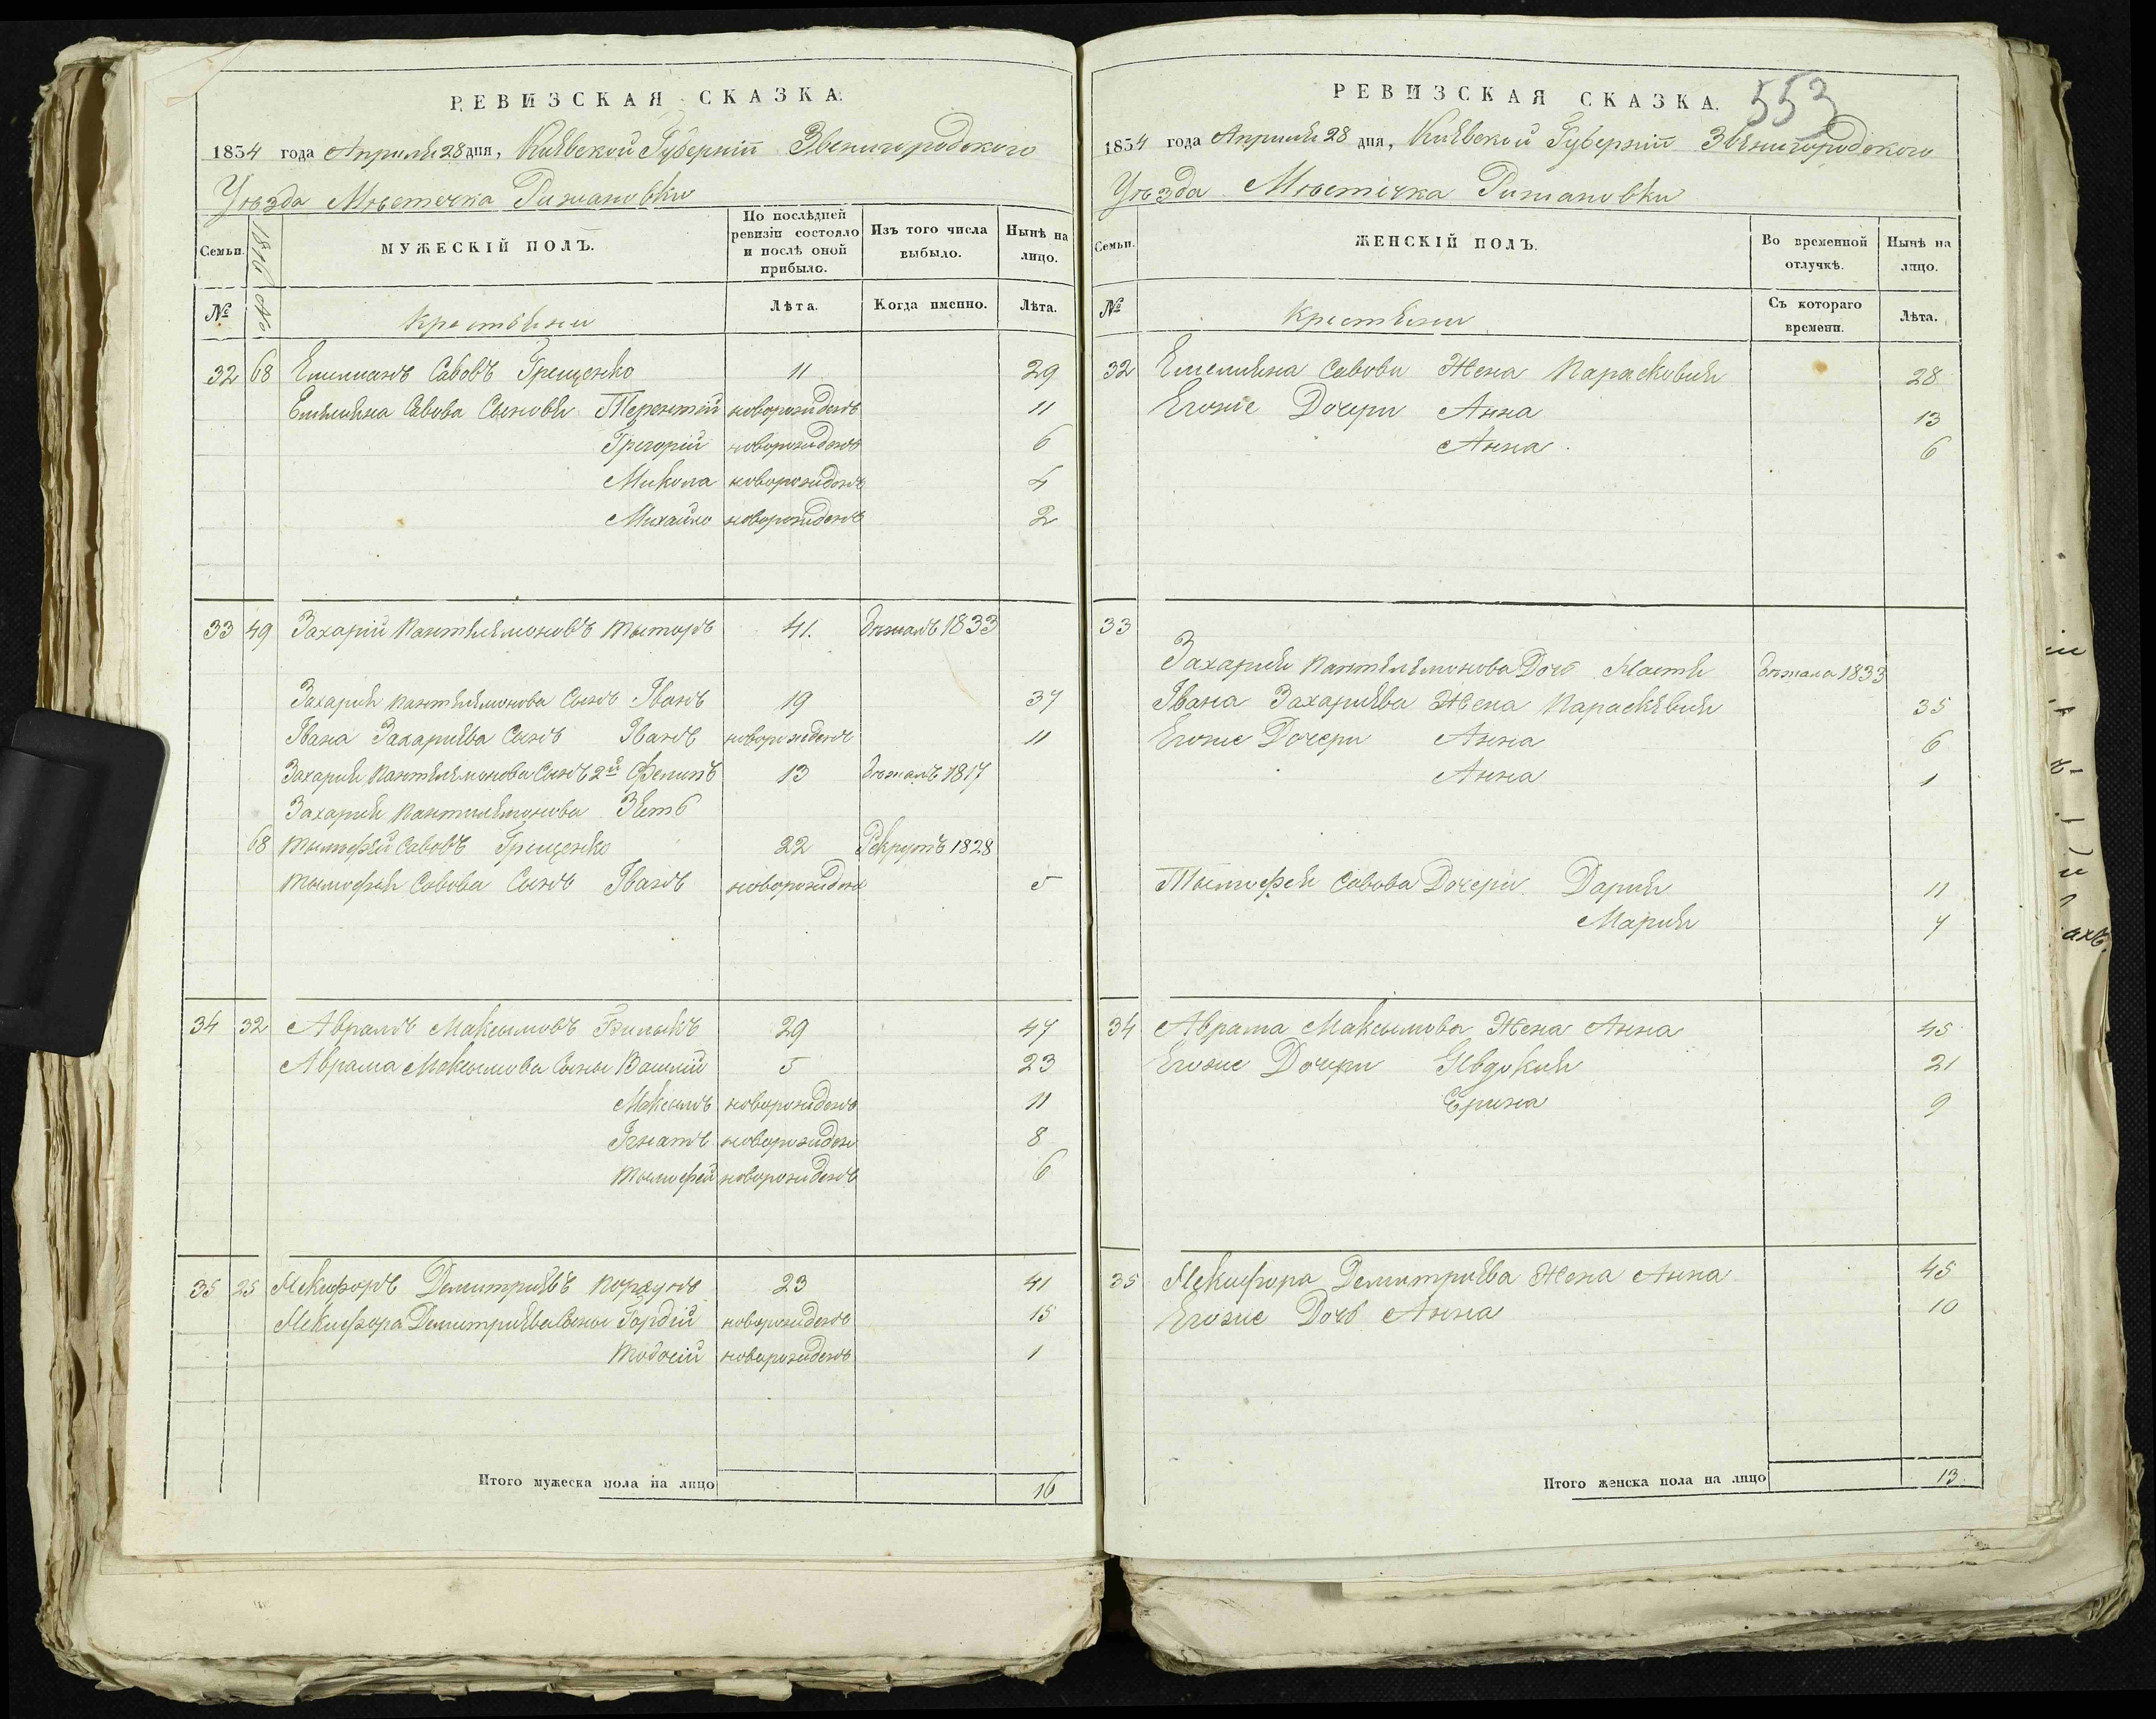 РЕВИЗСКАЯ СКАЗКА.
1834 года Апреля 28 дня, Киевской Губернии Звенигородского
Уѣзда Мѣстечка Рижановки
Семьи.
1816 №
МУЖЕСКІЙ ПОЛЪ.
По послѣдней ревизіи состояло и послѣ оной прибыло.
Изъ того числа выбыло.
Нынѣ на лицо.
№
Крестьяне
Лѣта.
Когда именно.
Лѣта.
32 68 Емилианъ Савовъ Грещенко 11 29
Емиляна Савова Сыновя Терентій новорожденъ 11
Грегорій новорожденъ 6
Микола новорожденъ 4
Михайло новорожденъ 2
33 49 Захарій Пантелемоновъ 41. бѣжалъ 1833
Захария Пантелемонова Сынъ Іванъ 19 37
Івана Захариева Сынъ Іванъ новорожденъ 11
Захария Пантелемонова Сынъ 2й Фелипъ 13 бѣжалъ 1817
Захария Пантелемонова Зять
68 Тымофей Савовъ Грещенко 22 Рекрутъ 1828
Тымофея Савова Сынъ Іванъ новорожден 5
34 32 Аврамъ Максымовъ Билыкъ 29 47
Аврама Максымова Сыны Василий 5 23
Максымъ новорожденъ 11
Ігнатъ новорожден 8
Тымофей новорожденъ 6
35 25 Некифоръ Демитриевъ 23 41
Некифора Демитриева Сыны Гордій новорожденъ 15
Тодосій новорожденъ 1
Итого мужеска пола на лицо 16
553
РЕВИЗСКАЯ СКАЗКА.
1834 года Апреля 28 дня, Киевской Губернии Звенигородского
Уѣзда Мѣстечка Рижановки
Семьи.
ЖЕНСКІЙ ПОЛЪ.
Во временной отлучкѣ.
Нынѣ на лицо.
№
Крестяни
Съ котораго времени.
Лѣта.
32 Емеляна Савова Жена Парасковия 28
Егоже Дочери Анна 13
Анна 6
33
Захария Пантелемонова Дочь Настя бѣжала 1833
Івана Захариева Жена Параскевия 35
Егоже Дочери Анна 6
Анна 1
Тымофея Савова Дочери Дария 11
Мария 7
34 Аврама Максымова Жена Анна 45
Егоже Дочери Явдокия 21
Ерина 9
35 Некифора Демитриева Жена Анна 45
Егоже Дочь Анна 10
Итого женска пола на лицо 13.
ахъ